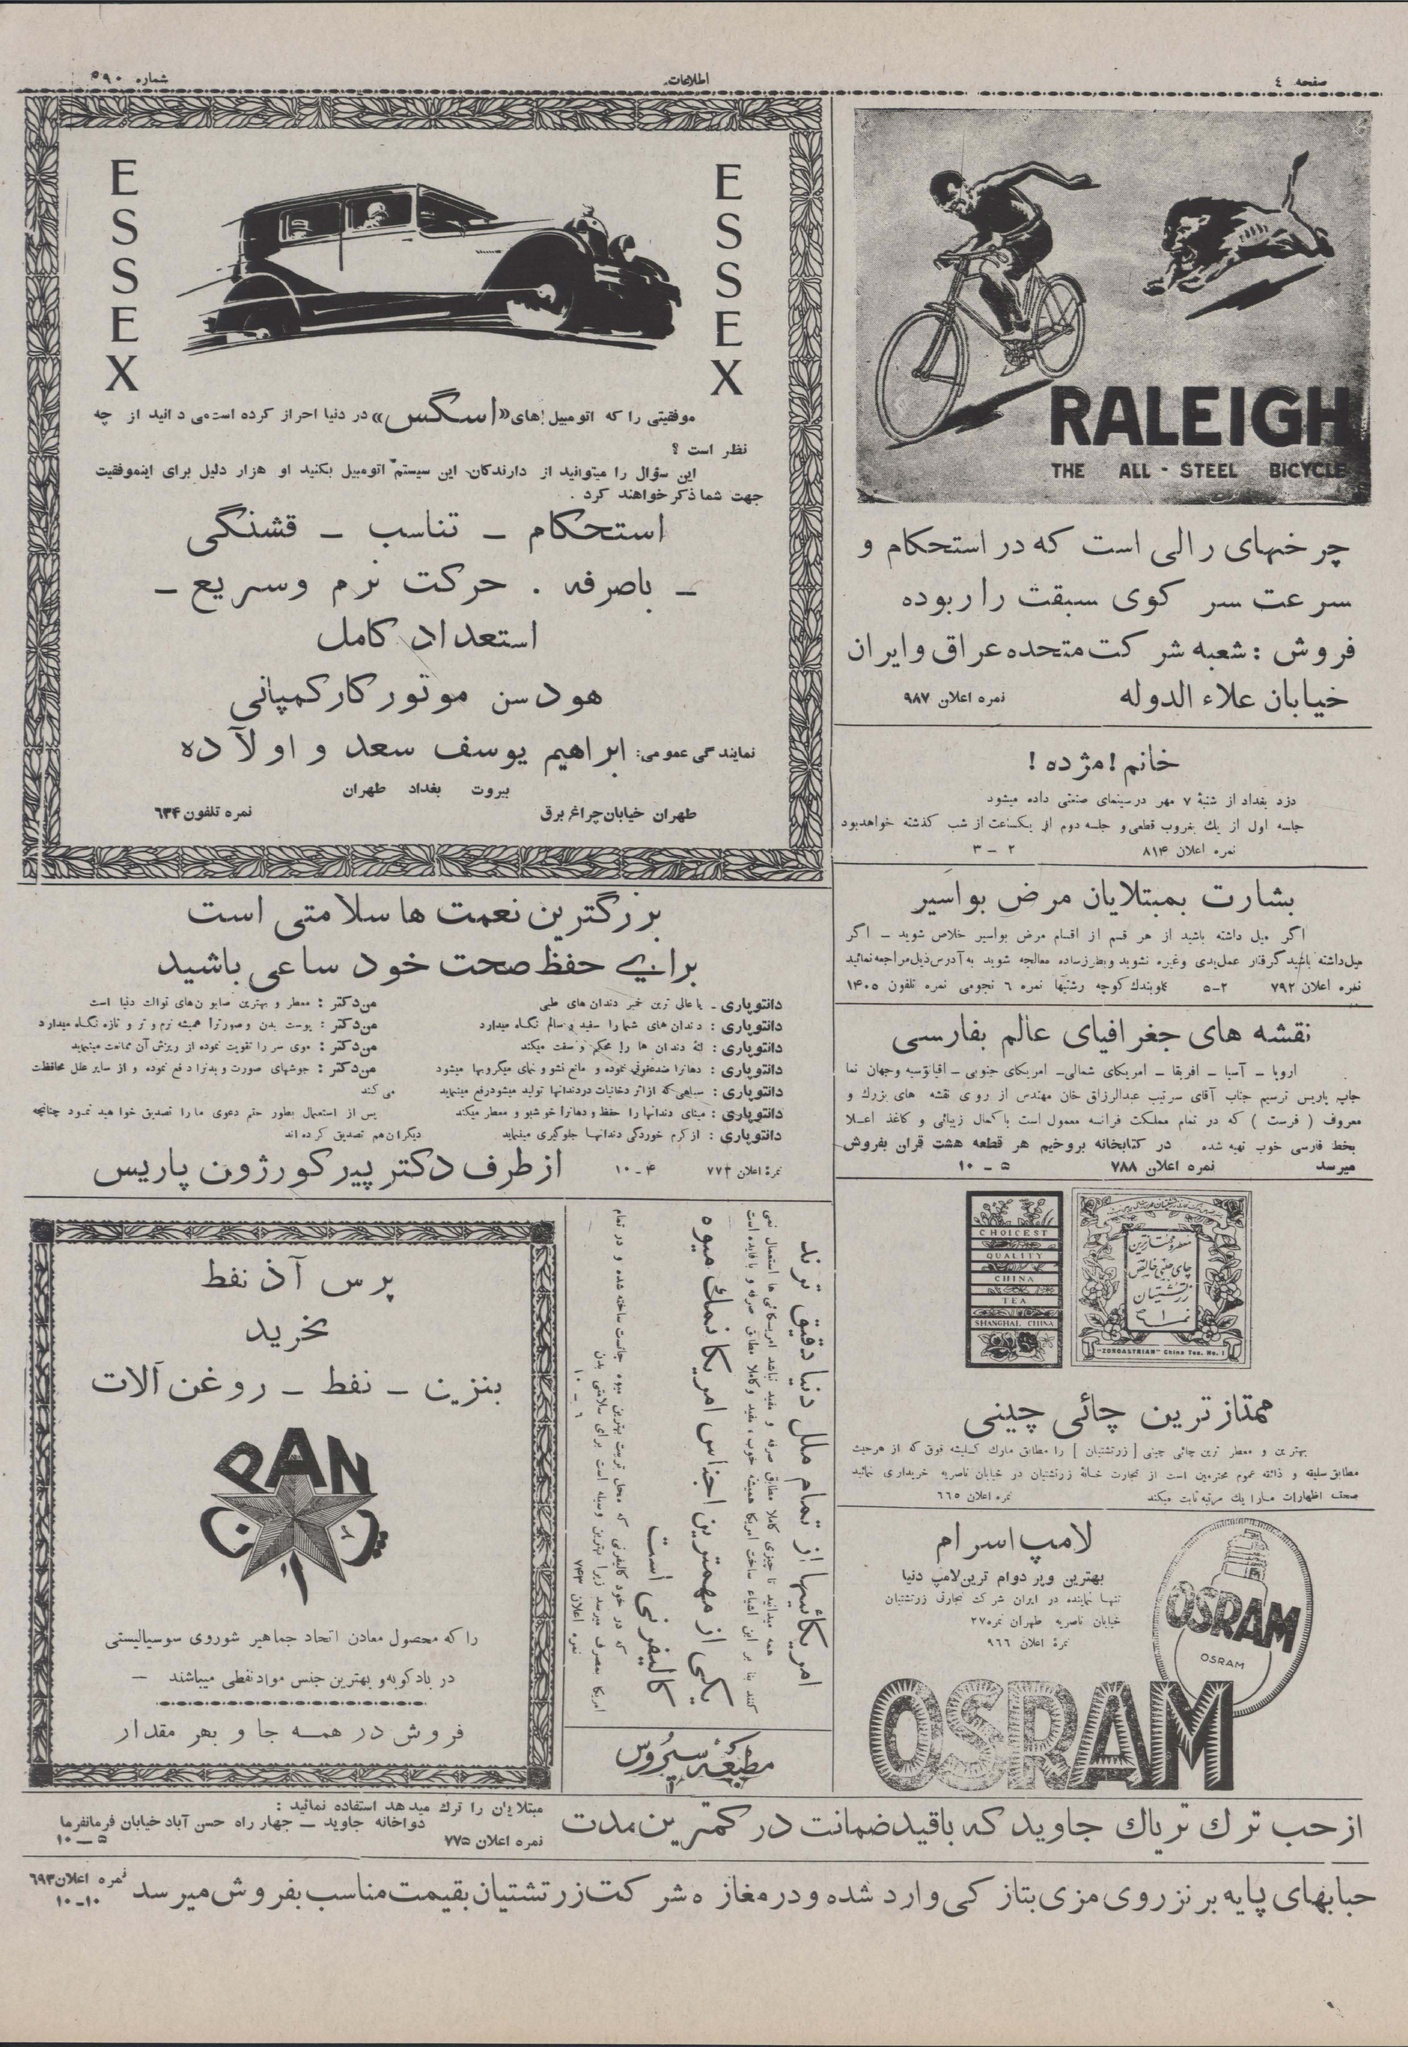 صفحه ٤
اطلاعات
شماره ٥٩٠
RALEIGH
THE ALL-STEEL BICYCLE
چرخهای رالی است که در استحکام و
سرعت سر کوی سبقت را ربوده
فروش : شعبه شرکت متحده عراق و ایران
خیابان علاء الدوله
نمره اعلان ۹۸۷
خانم ! مژده !
دزد بغداد از شنبهٔ ۷ مهر در سینمای صنعتی داده میشود
جلسه اول از یك بغروب قطعی و جلسه دوم از یکساعت از شب گذشته خواهد بود
نمره اعلان ۸۱۴
۲ – ۳
بشارت بمبتلایان مرض بواسیر
اگر میل داشته باشید از هر قسم از اقسام مرض بواسیر خلاص شوید – اگر
میل داشته باشید گرفتار عمل یدی وغیره نشوید وبطرز ساده معالجه شوید به آدرس ذیل مراجعه نمائید
نمره اعلان ۷۹۲
۲–۵
کوچه رشتیها نمره ۶ نجومی نمره تلفون ۱۴۰۵
نقشه های جغرافیای عالم بفارسی
اروپا – آسیا – افریقا – امریکای شمالی – امریکای جنوبی – اقیانوسیه وجهان نما
چاپ پاریس ترسیم جناب آقای سرتیب عبدالرزاق خان مهندس از روی نقشه های بزرك و
معروف ( فرست ) که در تمام مملکت فرانسه معمول است با کمال زیبائی و کاغذ اعلا
بخط فارسی خوب تهیه شده . در کتابخانه بروخیم هر قطعه هشت قران بفروش
میرسد
نمره اعلان ۷۸۸
۵ – ۱۰
CHOICEST
QUALITY
CHINA
TEA
SHANGHAI, CHINA
چای چینی خالص
زرتشتیان
نمره ۱
"ZOROASTRIAN" China Tea. No. 1
ممتازترین چائی چینی
بهترین و معطر ترین چائی چینی [ زرتشتیان ] را مطابق مارك کلیشه فوق که از هرحیث
مطابق سلیقه و ذائقه عموم محترمین است از تجارت خانهٔ زرتشتیان در خیابان ناصریه خریداری نمائید
صحت اظهارات ما را یك مرتبه ثابت میکند
نمره اعلان ۶۶۵
لامپ اسرام
بهترین وپر دوام ترین لامپ دنیا
تنها نماینده در ایران شرکت تجارتی زرتشتیان
خیابان ناصریه طهران نمره ۲۷
نمرهٔ اعلان ۹۶۶
OSRAM
OSRAM
OSRAM
ESSEX
ESSEX
موفقیتی را که اتومبیل های «اسگس» در دنیا احراز کرده است می دانید از چه
نظر است ؟
این سؤال را میتوانید از دارندگان این سیستم اتومبیل بکنید او هزار دلیل برای اینموفقیت
جهت شما ذکر خواهند کرد .
استحکام – تناسب – قشنگی
– باصرفه . حرکت نرم وسریع –
استعداد کامل
هودسن موتور کار کمپانی
نمایندگی عمومی: ابراهیم یوسف سعد و اولاده
بیروت بغداد طهران
طهران خیابان چراغ برق
نمره تلفون ۶۳۴
بزرگترین نعمت ها سلامتی است
برای حفظ صحت خود ساعی باشید
دانتوپاری – یا عالی ترین خمیر دندان های طبی
دانتوپاری : دندان های شما را سفید و سالم نگاه میدارد
دانتوپاری : لثهٔ دندان ها را محکم و سفت میکند
دانتوپاری : دهانرا ضدعفونی نموده و مانع نشو و نمای میکروبها میشود
دانتوپاری : سیاهی که از اثر دخانیات دردندانها تولید میشود رفع مینماید
دانتوپاری : مینای دندانها را حفظ و دهانرا خوشبو و معطر میکند
دانتوپاری : از کرم خوردگی دندانها جلوگیری مینماید
من دکتر : معطر و بهترین صابون های توالت دنیا است
من دکتر : پوست بدن و صورترا همیشه نرم و تر و تازه نگاه میدارد
من دکتر : موی سر را تقویت نموده از ریزش آن ممانعت مینماید
من دکتر : جوشهای صورت و بدنرا دفع نموده و از سایر علل محافظت
می کند
پس از استعمال بطور حتم دعوی ما را تصدیق خواهید نمود چنانچه
دیگران هم تصدیق کرده اند
نمرهٔ اعلان ۷۷۲
۴–۱۰
از طرف دکتر پیر کورژون پاریس
امریکائیها از تمام ملل دنیا دقیق ترند
همه میدانید تا چیزی کاملا مطابق صرفه و مفید نباشد امریکائی ها استعمال نمی
کنند بنا بر این اشیاء ساخت امریکا همیشه خوب ، مفید و کاملا مطابق صرفه و با فایده است
یکی از مهمترین اجناس امریکا نمك میوه
کالیفرنی است
که در خود کالیفرنی که محل تربیت بهترین میوه جاتست ساخته شده و در تمام
امریکا بمصرف میرسد زیرا بهترین وسیله است برای سلامتی بدن
نمره اعلان ۷۴۳
۶ – ۱۰
مطبعه سیروس
پرس آذ نفط
بخرید
بنزین – نفط – روغن آلات
PAN
را که محصول معادن اتحاد جماهیر شوروی سوسیالیستی
در بادکوبه و بهترین جنس مواد نفطی میباشند –
فروش در همه جا و بهر مقدار
از حب ترك تریاك جاوید که باقید ضمانت در کمترین مدت
مبتلایان را ترك میدهد استفاده نمائید :
دواخانه جاوید – چهار راه حسن آباد خیابان فرمانفرما
نمره اعلان ۷۷۵
۵ – ۱۰
حبابهای پایه برنز روی مزی بتازکی وارد شده و در مغازه شرکت زرتشتیان بقیمت مناسب بفروش میرسد
نمره اعلان ۶۹۳
۱۰–۱۰